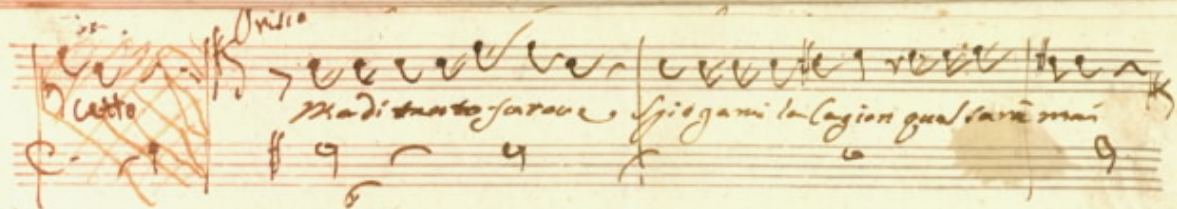 cetto Ma di tanto furore, Spiegami la Cagion qual sarà mai
6